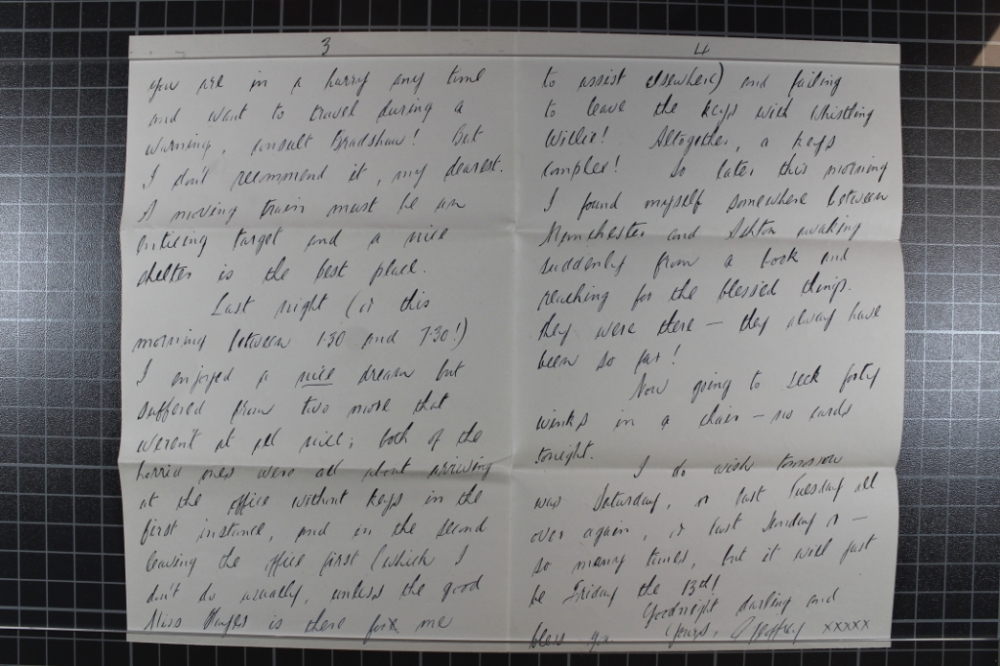 3
you are in a hurry any time
and want to travel during a
warning, consult Bradshaw! But
I don't recommend it, my dearest.
A moving train must be an
enticing target and a nice
shelter is the best place.
Last night (or this
morning between 1.30 and 7.30!)
I enjoyed a nice dream but
suffered from two more that
weren't at all nice; both of the
horrid ones were all about arriving
at the office without keys in the
first instance, and in the second
leaving the office first (which I
don't do usually, unless the good
Miss is there for me
4
to assist elsewhere) and failing
to leave the keys with Whistling
Willie! Altogether, a keys
complex! So later this morning
I found myself somewhere between
Manchester and Ashton waking
suddenly from a book and
reaching for the blessed things.
They were there — they always have
been so far!
Now going to seek forty
winks in a chair — no cards
tonight.
I do wish tomorrow
was Saturday, or last Tuesday all
over again, or last Sunday or —
so many times, but it will just
be Friday the 13th!
Goodnight darling and
bless you. Yours, Geoffrey xxxxx